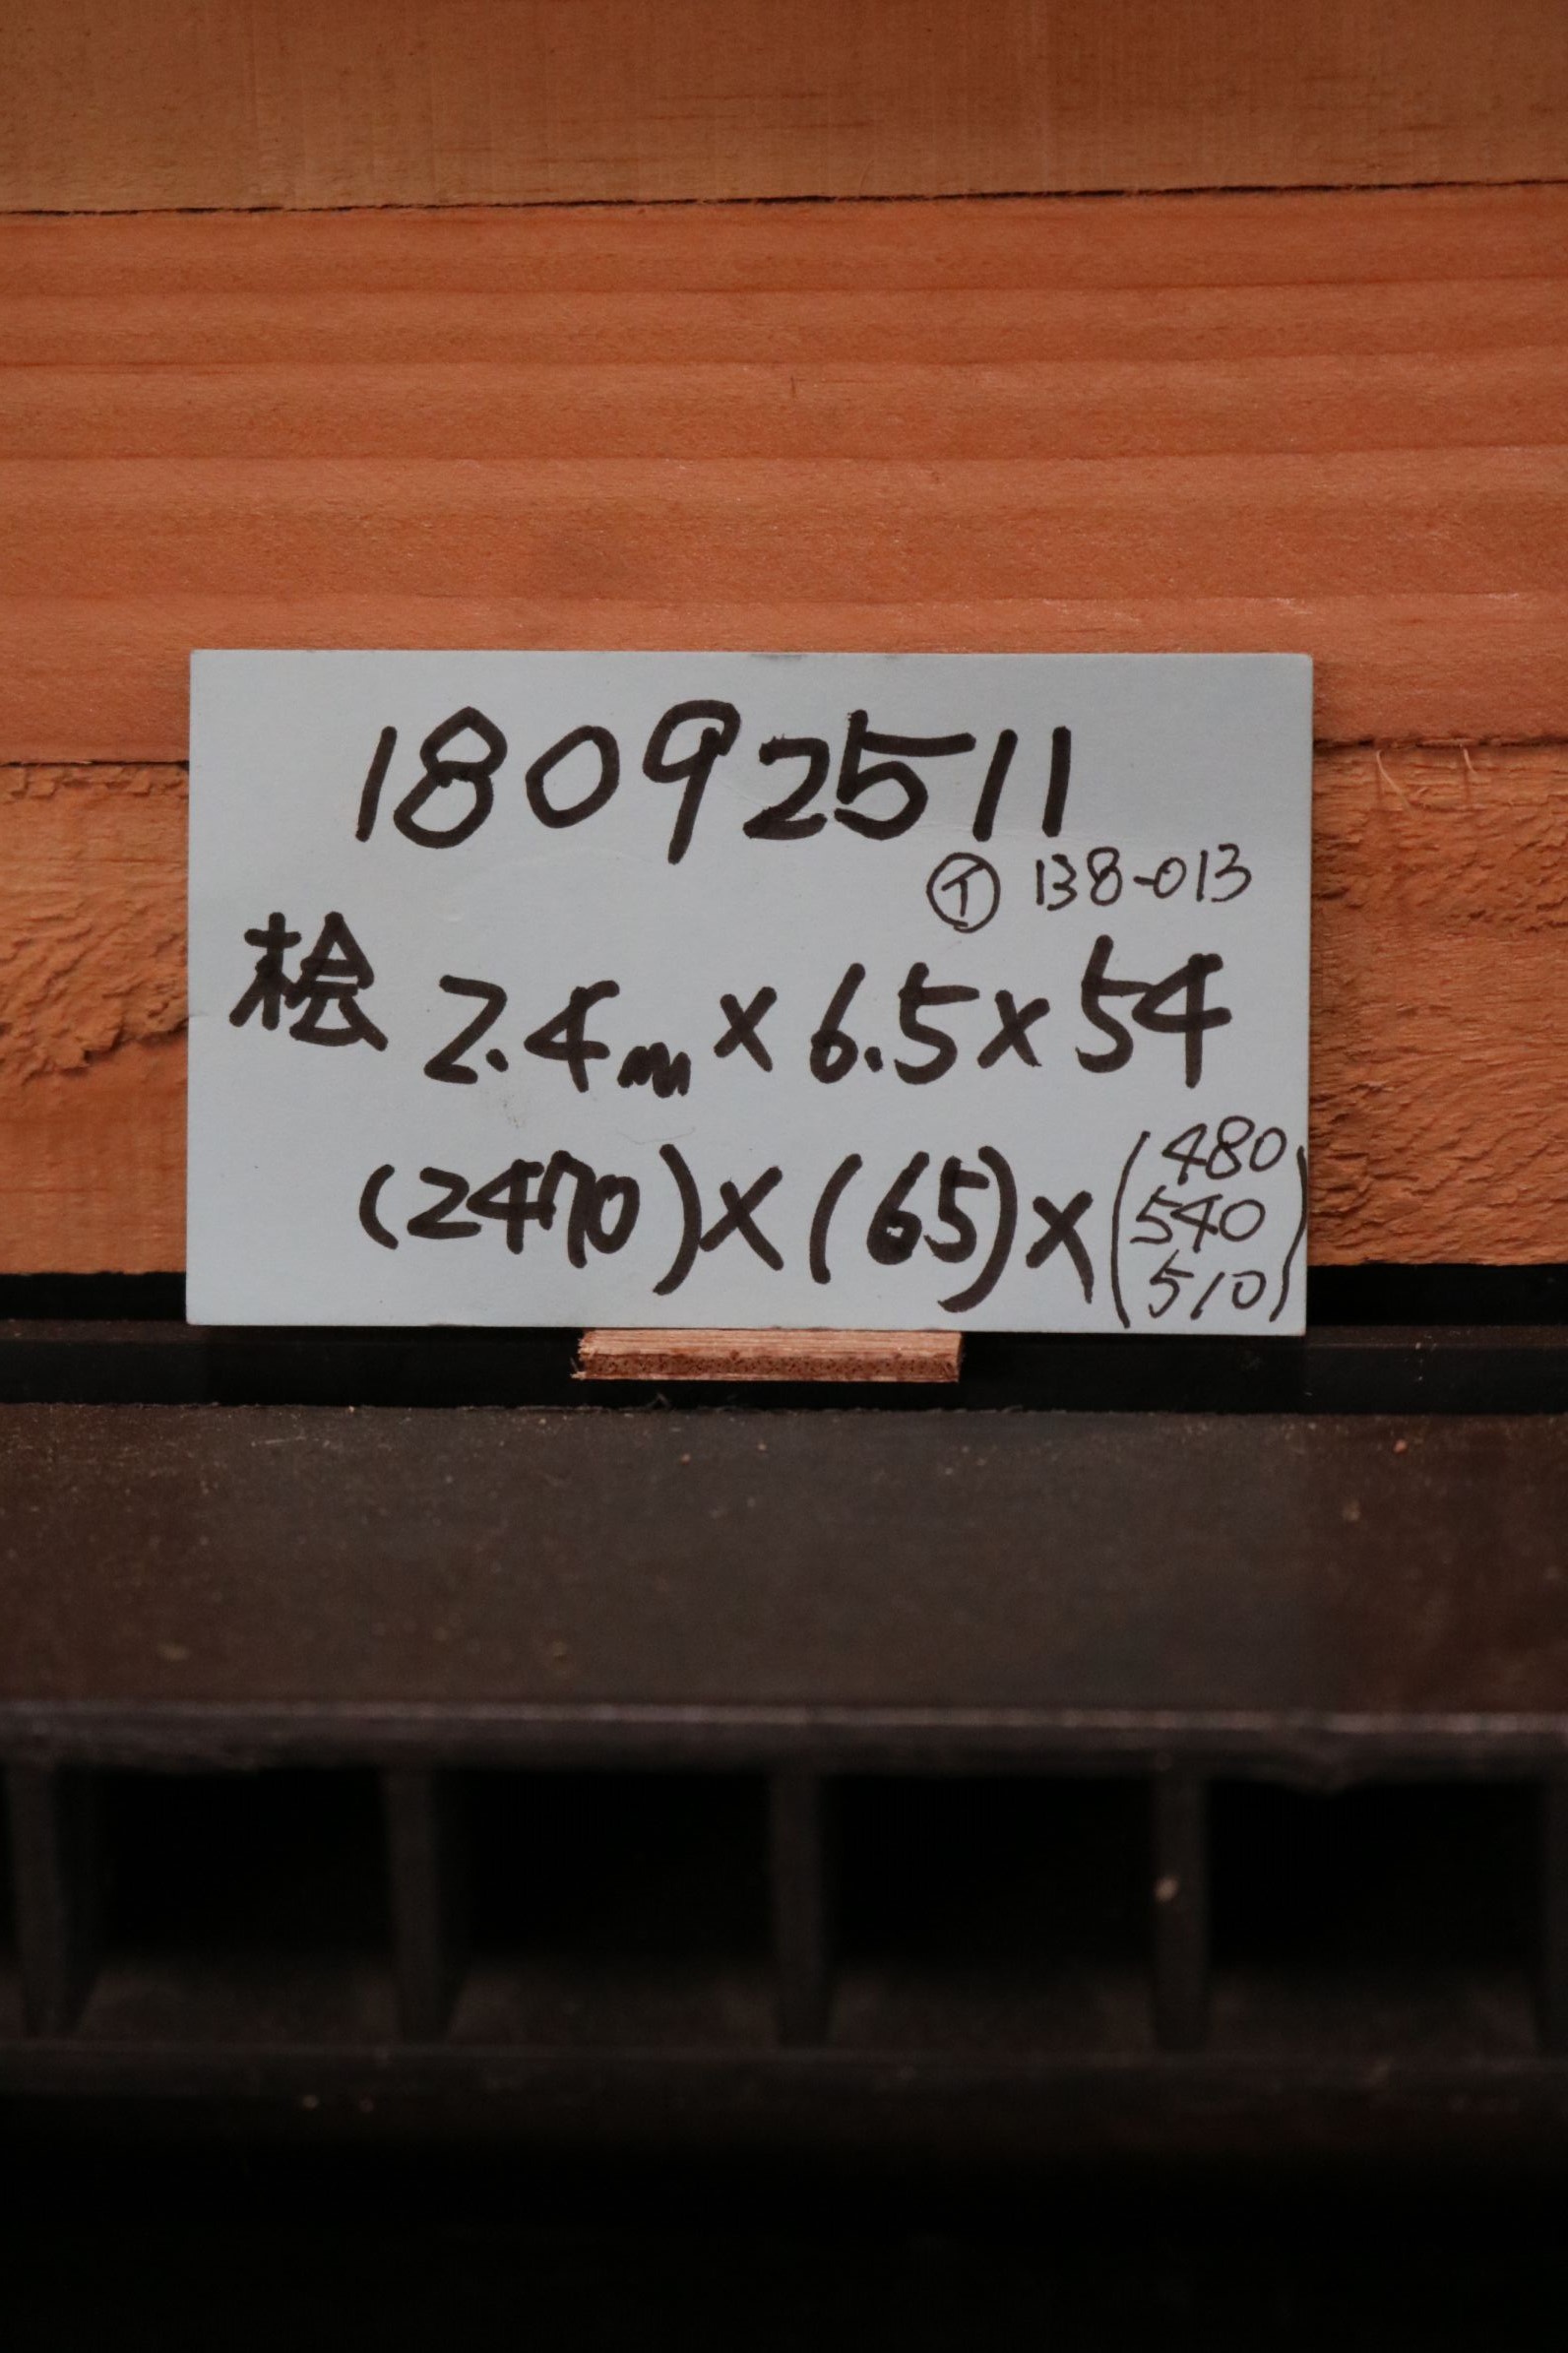 18092511
Ⓣ 138-013
桧 2.4m×6.5×54
(2470)×(65)×(480
540
510)